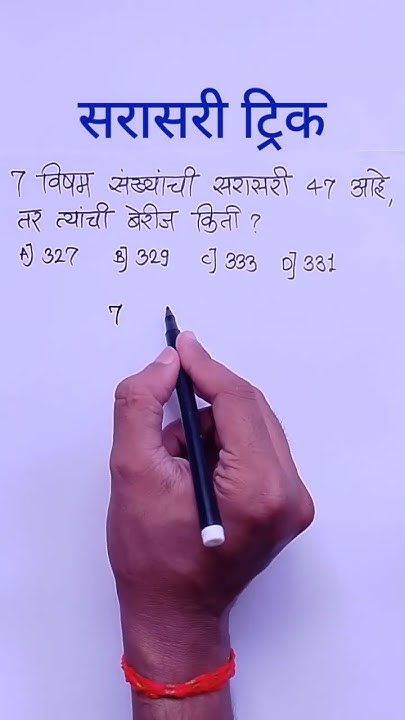 सरासरी ट्रिक
7 विषम संख्यांची सरासरी 47 आहे,
तर त्यांची बेरीज किती ?
A] 327 B] 329 C] 333 D] 331
7